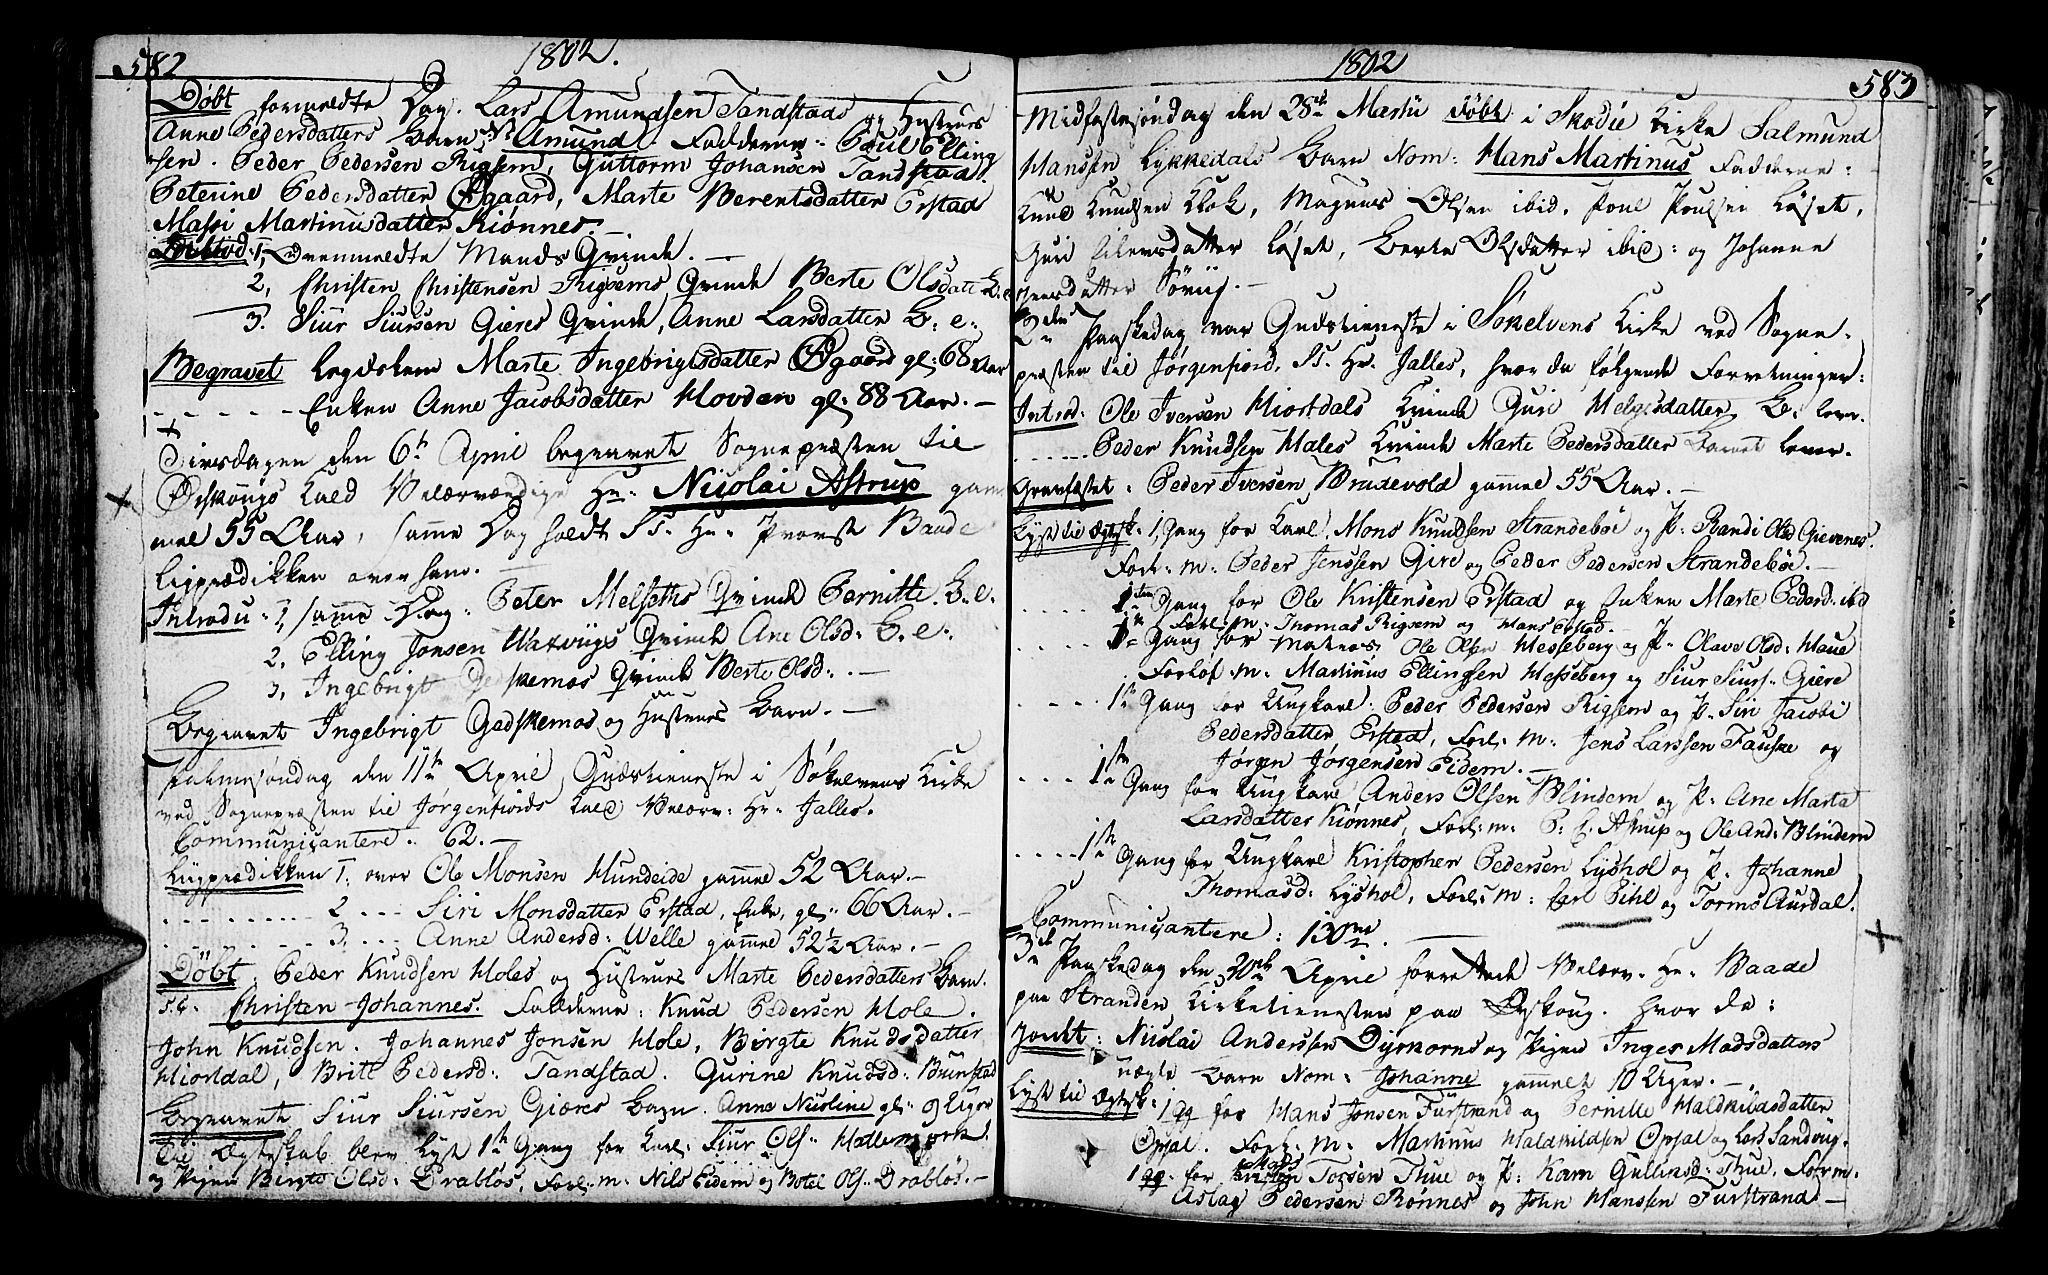 582
1802.
Døbt formeldte Dag. Lars Amundsen Tandstads og Hustrues
Anne Pedersdatters Barn N: Amund. Fadderne: Poul Elling
sen. Peder Pedersen Rigsem, Guttorm Johansen Tandstad.
Peterine Pedersdatter Øgaard, Marte Berentsdatter Erstad
Massi Martinusdatter Kiønnes.
Introd: 1, Ovenmeldte Mands Qvinde. —
2, Christen Christensen Rigsems Qvinde Berte Olsdatt B. e
3. Siur Siursen Gieres Qvinde, Anne Larsdatter B: e:
Begravet Legdslem Marte Ingebrigtsdatter Øgaard gl: 68 Aar
- - - - - - Enken Anne Jacobsdatter Hovden gl: 88 Aar. —
Tirsdagen den 6te April begravet Sognepræsten til
Ørskougs Kald Velærværdige Hr: Nicolai Astrup gam
mel 55 Aar, samme Dag holdt St. Hr: Provst Baade
Ligprædikken over ham. —
Introdu: 1, samme Dag: Peter Melseths Qvinde Pernille. B. e.
2, Elling Jonsen Vaxvigs Qvinde Ane Olsd: B. e:
3, Ingebrigt Gedskemos Qvinde Berte Olsd: . —
Begravet Ingebrigt Gedskemos og Hustrues Barn. —
Palmesøndag den 11te April Gudstieneste i Søkelvens Kirke
ved Sognepræsten til Jørgenfiords Kald Velærv: Hr: Jalles.
Communicantere: 62. —
Liigprædikken 1: over Ole Monsen Hundeide gammel 52 Aar. —
- - - - - - 2 - - - Siri Monsdatter Erstad, Enke, gl: 66 Aar. —
- - - - - - 3, - - - Anne Andersd: Welle gammel 52½ Aar. —
Døbt, Peder Knudsen Holes og Hustrues Marte Pedersdatters Barn.
Christen Johannes. Fadderne: Knud Pedersen Hole.
John Knudsen. Johannes Jonsen Hole, Birgte Knudsdatter
Hiortdal, Britt Pedersd: Tandstad. Gurine Knudsd: Brunstad
Begravet Siur Siursen Gieres Barn. Anne Nicoline gl: 9 Uger
Til Ægteskab blev Lyst 1te Gang for Karl: Siur Ols: Hallemork
og Pigen Birgte Olsd: Drabløs, Forl: m: Nils Eidem og Botel Ols: Drabløs. —
1802
583
Midfastesøndag den 28de Martii Døbt i Skodie Kirke Salmund
Hanssen Lykkedals Barn Nom: Hans Martinus Fadderne:
Knud Knudsen Klok, Magnus Olsen ibid, Poul Poulsen Løset,
Guri Siversdatter Løset, Berte Olsdatter ibid: og Johanne
Jensdatter Sørvig. —
2den Paaskedag var Gudstieneste i Søkelvens Kirke ved Sogne-
præsten til Jørgenfiord, St. Hr. Jalles, hvor da følgende Forretninger:
Introd: Ole Iversen Hiortdals Kvinde Guri Helgesdatter, B: lever
- - - - - Peder Knudsen Hales Kvinde Marte Pedersdatter Barnet lever.
Gravfæstet: Peder Iversen Brudevold gammel 55 Aar. —
Lyst til Ægtesk: 1, Gang for Karl: Mons Knudsen Strandebøe og P: Randi Olsd Gievenes.
Forl: m: Peder Jenssen Giere og Peder Pedersen Strandebøe. —
- - - - 1ste Gang for Ole Kristensen Erstad og Enken Marte Pedersd: ibd
Forl: m: Thomas Rigsem og Hans Erstad.
- - - - 1te Gang for Ole Olsen Hesseberg og P: Olave Olsd: Haue
Forlof m: Martinus Ellingsen Hesseberg og Siur Siurs: Giere
- - - - 1te Gang for Ungkarl: Peder Pedersen Rigsem og P: Siri Jacobi
Pedersdatter Erstad, Forl: m: Jens Larssen Fauske og
Jørgen Jørgensen Eidem. —
- - - - 1te Gang for Ungkarl Anders Olsen Blindem og P: Ane Marta
Larsdatter Kiønnes, Forl: m: P: E: Astrup og Ole And: Blindem
- - - - 1te Gang for Ungkarl Kristopher Pedersen Lyshol og P: Johanne
Thomasd: Lyshol, Forl: m: Carl Pihl og Tormo Aursdal.
Communicantere: 130
3de Paaskedag den 30de April forrettede Velærv: Hr: Baade
paa Stranden Kirketiensten paa Ørskoug. hvor da:
Jordt: Nicolai Anderssen Dyrkorns og Pigen Inger Madsdatters
uægte Barn Nom: Johanne gammelt 10 Uger. —
Lyst til Ægtesk: 1 gg for Hans Jonsen Furstrand og Pernille Haldkildsdatter
Opsal. Forl: m: Martinus Haldkildsen Opsal og Lars Sandvig.
1 gg. for Mads Torsen Thue og P: Karn Gullicksd: Thue. For: m.
Aslag Pedersen Rønnes og John Hanssen Furstrand —